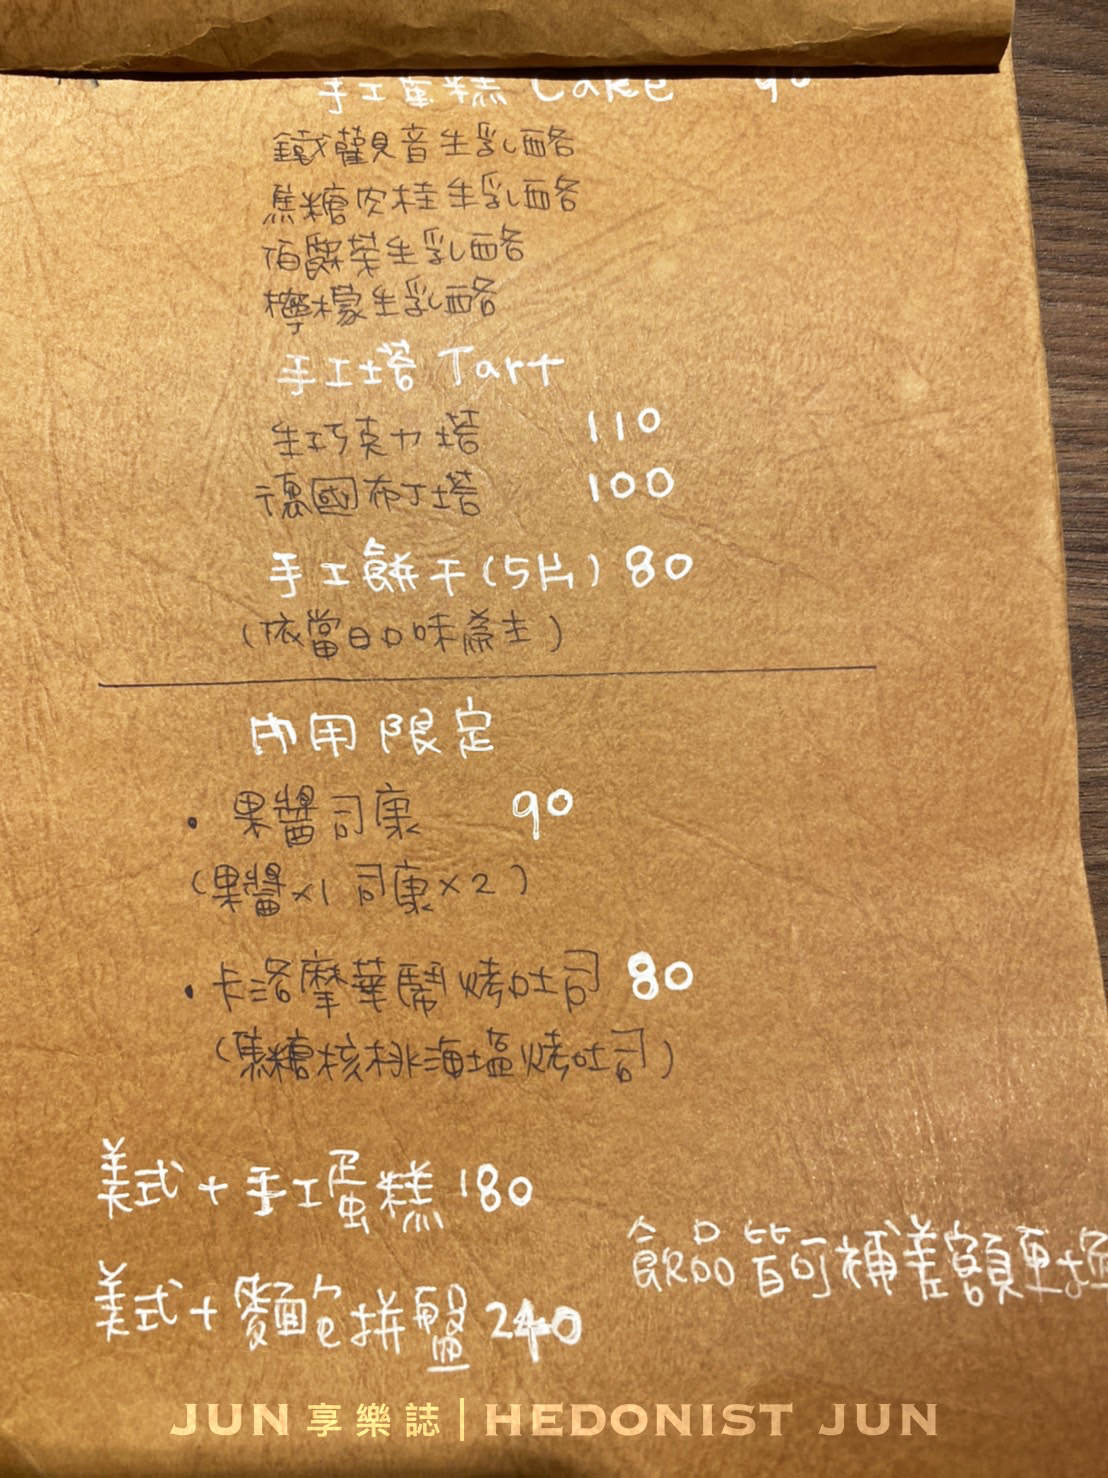 手工蛋糕 Cake 90
鐵觀音生乳酪
焦糖肉桂生乳酪
伯爵茶生乳酪
檸檬生乳酪
手工塔 Tart
生巧克力塔 110
德國布丁塔 100
手工餅干(5片) 80
(依當日口味為主)
內用限定
・果醬司康 90
(果醬x1 司康x2)
・卡洛摩華鬧烤吐司 80
(焦糖核桃海塩烤吐司)
美式+手工蛋糕 180
美式+麵包拼盤 240
飲品皆可補差額更換
JUN享樂誌|HEDONIST JUN